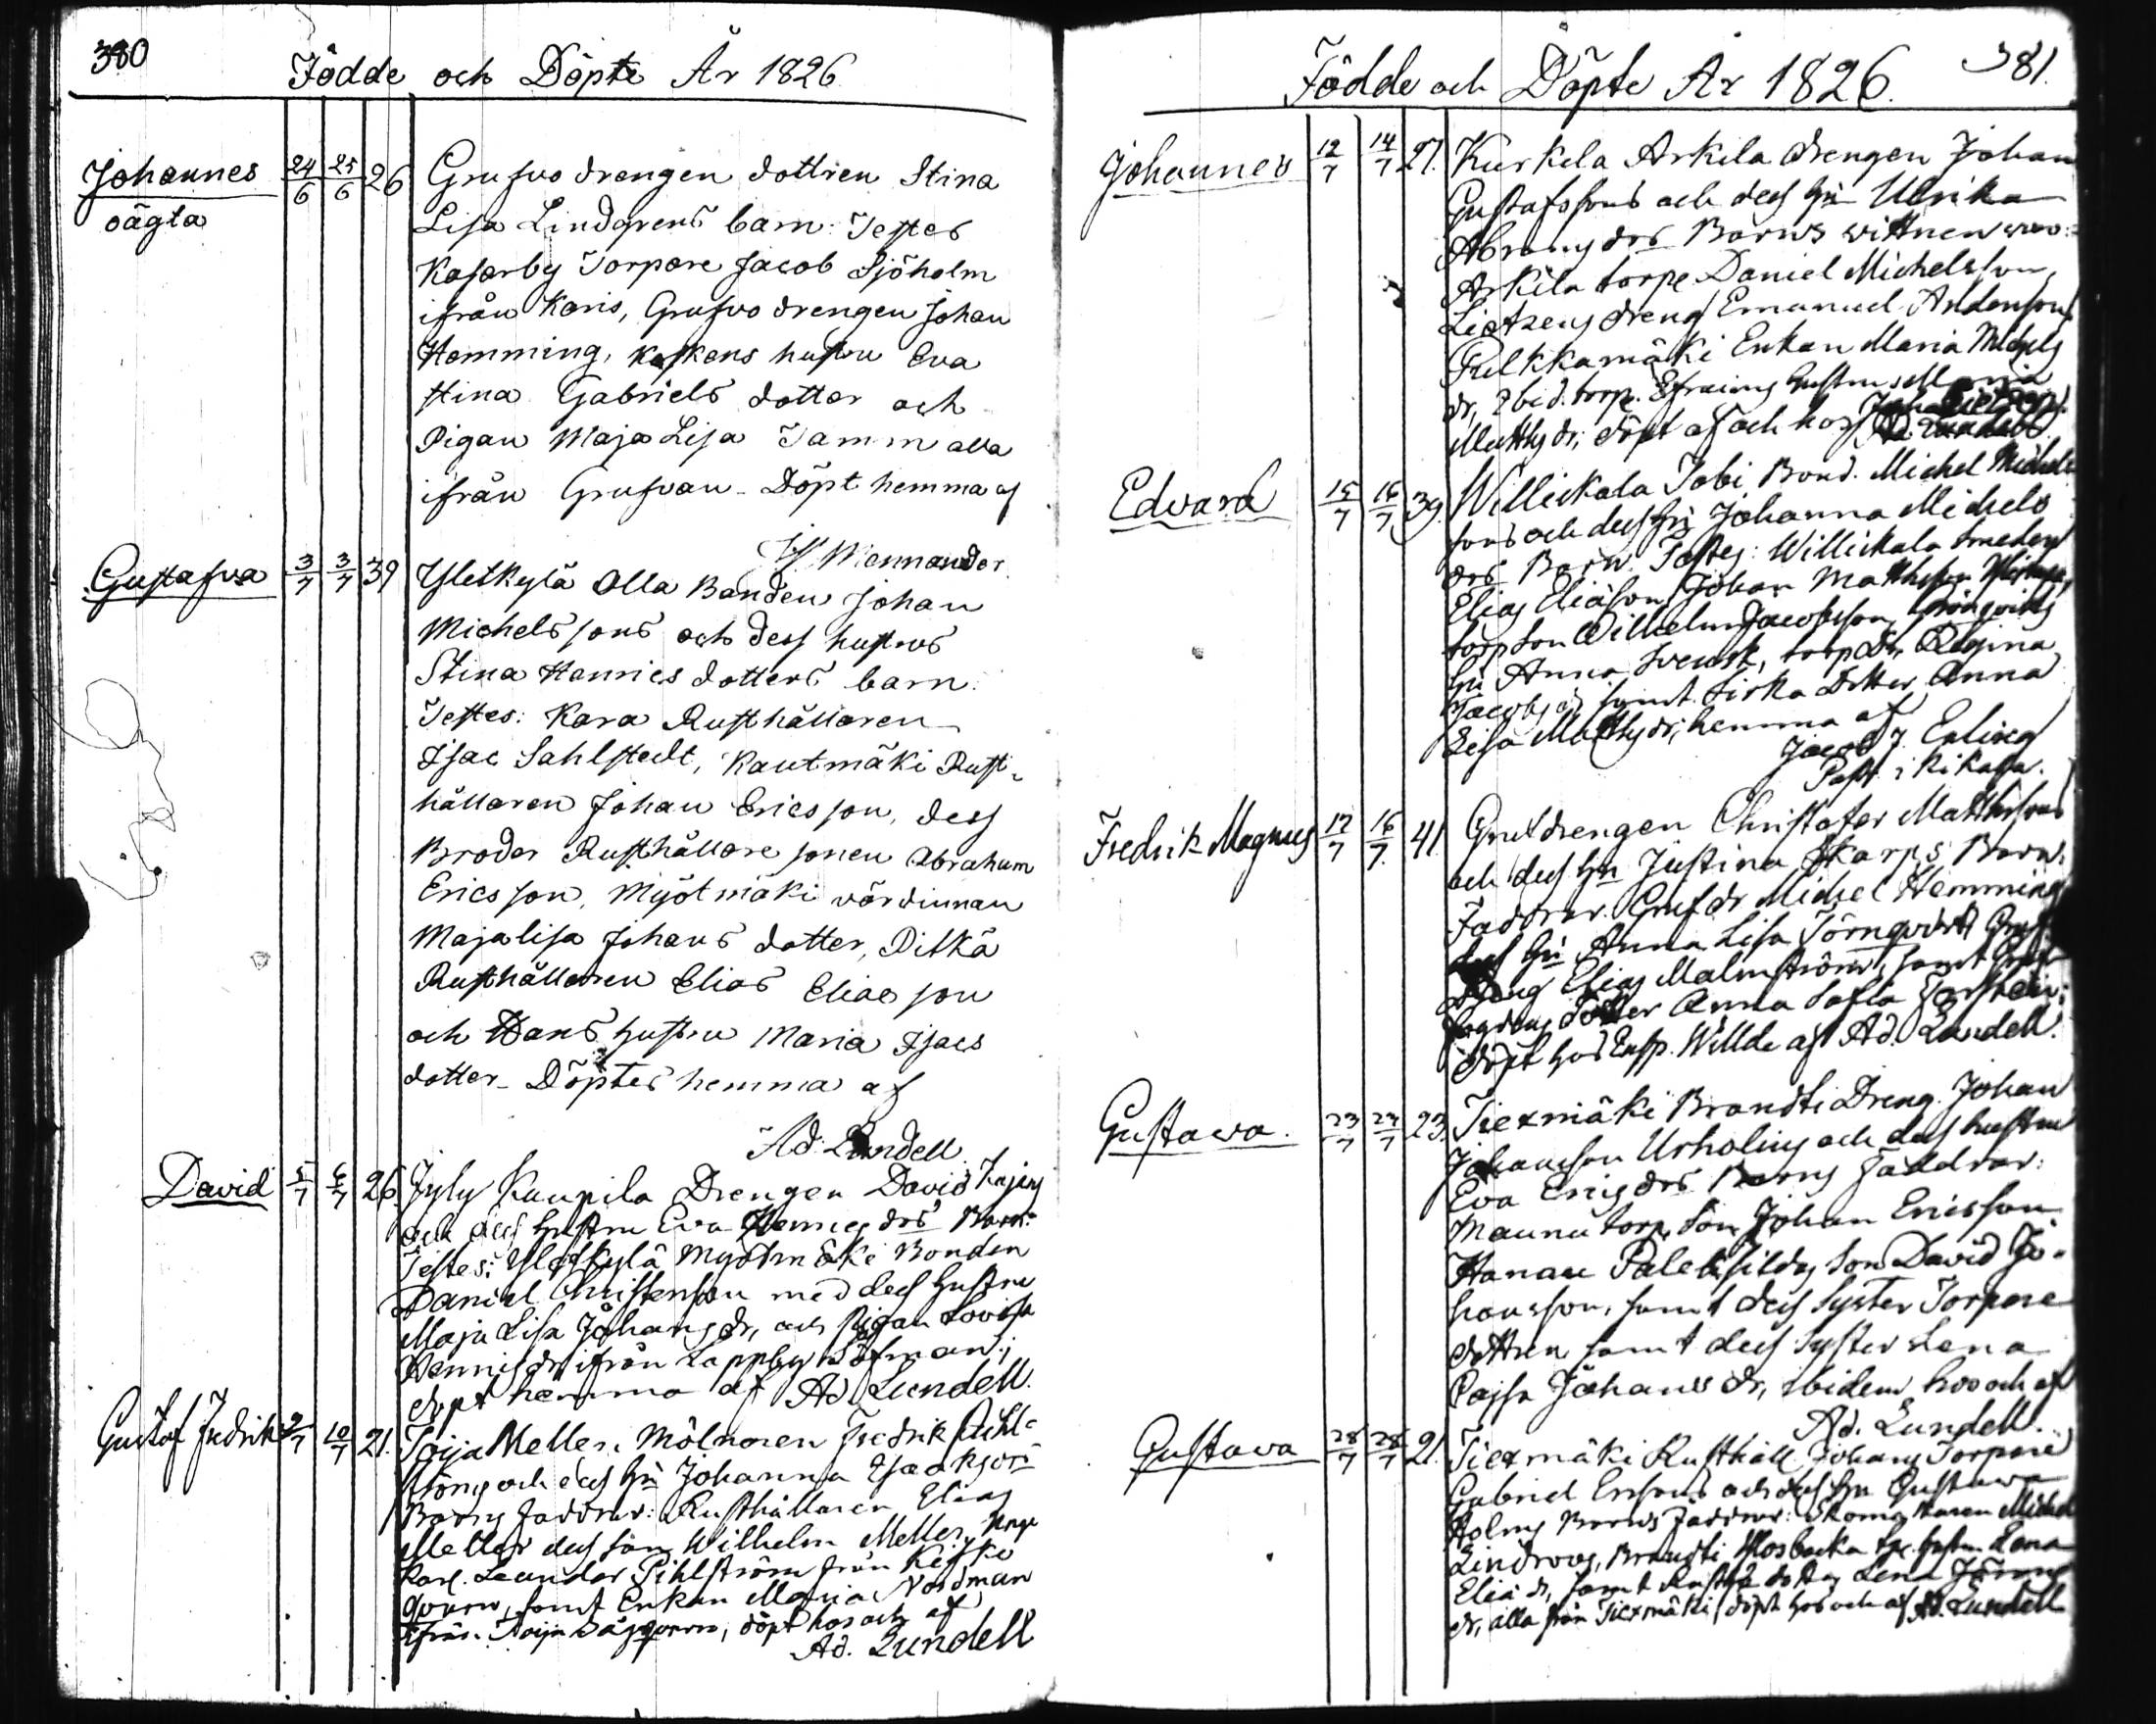 380
Födde och Döpte År 1826
Johannes 24/6 25/6 26 Grufvo drengen dottren Stina
oägta
Lisa Lindgrens barn: Testes
Kaserby Torpare Jacob Sjöholm
ifrån Karis, Grufvo drengen Johan
Hemming, Kuskens hustru Eva
Stina Gabriels dotter och
Pigan Maja Lisa Tamm alla
ifrån Grufvan - Döpt hemma af
Wennander
Gustafva 3/7 3/7 39 Yletkylä Olla Banden Johan
Michelssons och dess hustrus
Stina Henrics dotters barn.
Testes: Kara Rusthållaren
Isac Sahlstedt, Kautmäki Rust-
hållaren Johan Ericsson, dess
Broder Rusthållare sonen Abraham
Ericsson, Myötmäki värdinnan
Majalisa Johans dotter, Pitkä
Rusthållaren Elias Eliasson
och Hans hustru Maria Isacs
dotter - Döptes hemma af
Ad. Lundell
David 5/7 6/7 26. Jyly Kaupila Drengen David
och dess hustru Eva Henricsdrs Barn.
Testes: Yletkylä Myötmäki Bonden
Daniel Christersson med dess hustru
Maja Lisa Johansdr, och Pigan Lovisa
Henricsdr ifrån Lappby Löfman;
döpt hemma af Ad. Lundell.
Gustaf Fredrik 9/7 10/7 21. Toija Meller, Mölnaren Fredrik Pihl-
ströms och dess hu Johanna Isaaks
Barns faddrar: Rusthållaren Elias
Meller dess son Wilhelm Meller, Unge
Karl. Leander Pihlström från Kisko
qvarn, samt Enkan Maria Nordman
ifrån Toija Sågqvarn, döpt hos och af
Ad. Lundell
381.
Födde och Döpte År 1826.
Johannes 12/7 14/7 27. Kurkela Arkila drengen Johan
Gustafssons och dess hu Ulrika
Abramsdrs Barns wittnen woro:
Arkila torpe Daniel Michelsson,
dreng Emanuel Andersson
Pulkkamäki Enkan Maria Michels
dr, Ibid. torp. Efraims hustru Maria
Matthsdr, döpt af och hos Ad. Lundell
Edvard 15/7 16/7 39. Willikala Tobi Bond. Michel Michels
sons och dess hu Johanna Michels
drs Barn. Testes: Willikala Smeden
Elias Eliasson, Johan Matthsson
torp son Wilhelm Jacobsson, Grönqvists
hu Anna Svensk, torp dr, Regina
Jacobsdr, samt Sirka Dotter Anna
Lisa Matthsdr, hemma af
Jacob J. Erling
Past. i Kikala.
Fredrik Magnus 12/7 16/7 41. Grufdrengen Christofer Matthssons
och dess hu Justina Skarps Barn.
Faddrar. Grufdr Michel Hemming
dess hu Anna Lisa Törnqvist Gruf
dreng Elias Malmström, samt Gruf
fogdens Dotter Anna Sofia
döpt hos Insp. Willde af Ad. Lundell.
Gustava. 23/7 24/7 23. Tiexmäki Brandti Dreng. Johan
Johansson Urholins och dess hustru
Eva Ericsdrs Barns Faddrar:
Maunu torp. Son Johan Ericsson
Hanau Son David Jo-
hansson, samt dess Syster Torpare
dottren samt dess Syster Lena
Cajsa Johans dr, ibidem hos och af
Ad. Lundell.
Gustava 28/7 28/7 21. Tiexmäki Rusthåll Johans Torpare
Gabriel Erssons och dess hu Gustava
Holms Barns Faddrar: Skomakaren Michel
Lindroos, Brandti Mosbacka tpe hustru Lena
Elia dr, samt Rusth. dotter Lena Johans
dr, alla från Tiexmäki, döpt hos och af Ad. Lundell